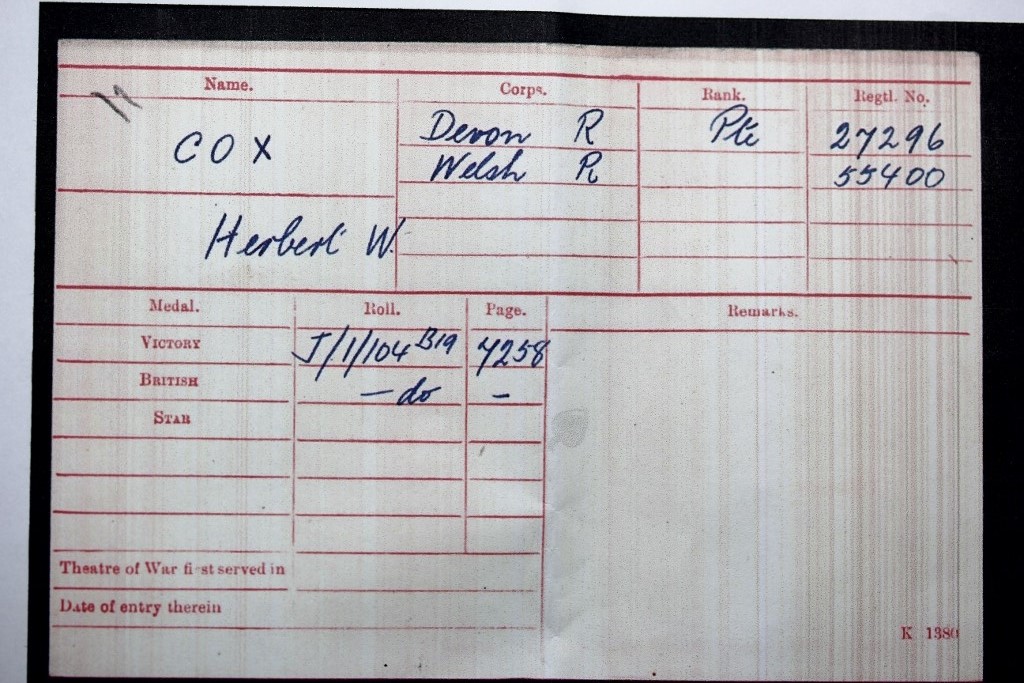 Name. Corps. Rank. Regtl. No.
COX Devon R Pte 27296
Welsh R 55400
Herbert W.
Medal. Roll. Page. Remarks.
VICTORY J/1/104 B19 7258
BRITISH — do —
STAR
Theatre of War first served in
Date of entry therein
K 1380